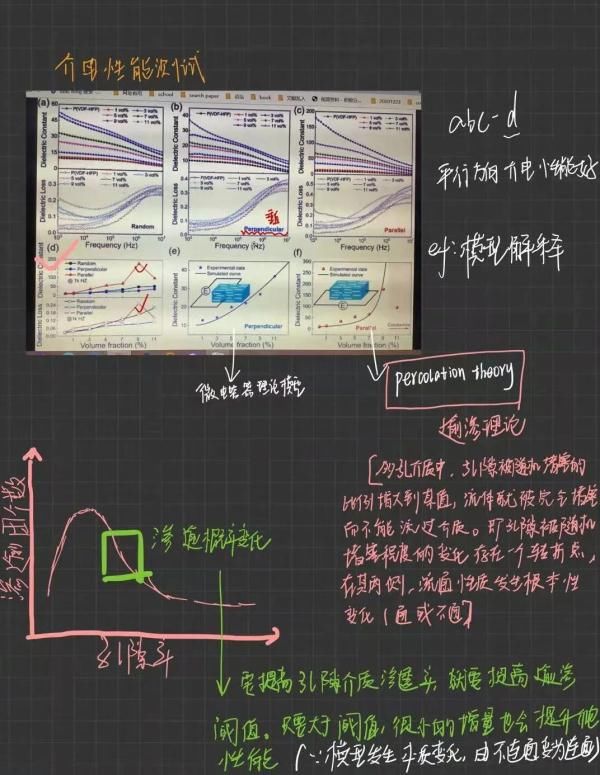 介电性能测试
search paper
book
(a)
60
P(VDF-HFP)
1 vol%
3 vol%
5 vol%
7 vol%
9 vol%
11 vol%
Dielectric Constant
Dielectric Loss
Random
Frequency (Hz)
(b)
P(VDF-HFP)
1 vol%
3 vol%
5 vol%
7 vol%
9 vol%
11 vol%
Dielectric Constant
Dielectric Loss
Perpendicular
Frequency (Hz)
(c)
P(VDF-HFP)
1 vol%
3 vol%
5 vol%
7 vol%
9 vol%
11 vol%
Dielectric Constant
Dielectric Loss
Parallel
Frequency (Hz)
abc-d
平行方向介电性能好
(d)
Random
Perpendicular
Parallel
@1k HZ
Dielectric Constant
Dielectric Loss
Random
Perpendicular
Parallel
@1k HZ
Volume fraction (%)
(e)
Experimental data
Simulated curve
Dielectric Constant
E
Perpendicular
Volume fraction (%)
(f)
Experimental data
Simulated curve
Dielectric Constant
E
Parallel
Conductive
Volume fraction (%)
ef:模型解释
微电容器理论模型
percolation theory
逾渗理论
[多孔介质中,孔隙被随机堵塞的
比例增大到某值,流体就被完全堵塞
而不能流过介质。即孔隙被随机
堵塞程度的变化存在一个转折点,
在其两侧,流通性质发生根本性
变化(通或不通)]
渗透概率变化
孔隙率
要提高孔隙介质渗透率,就要提高逾渗
阈值。只要大于阈值,很小的增量也会提升
性能(∵模型发生本质变化,由不连通变为连通)